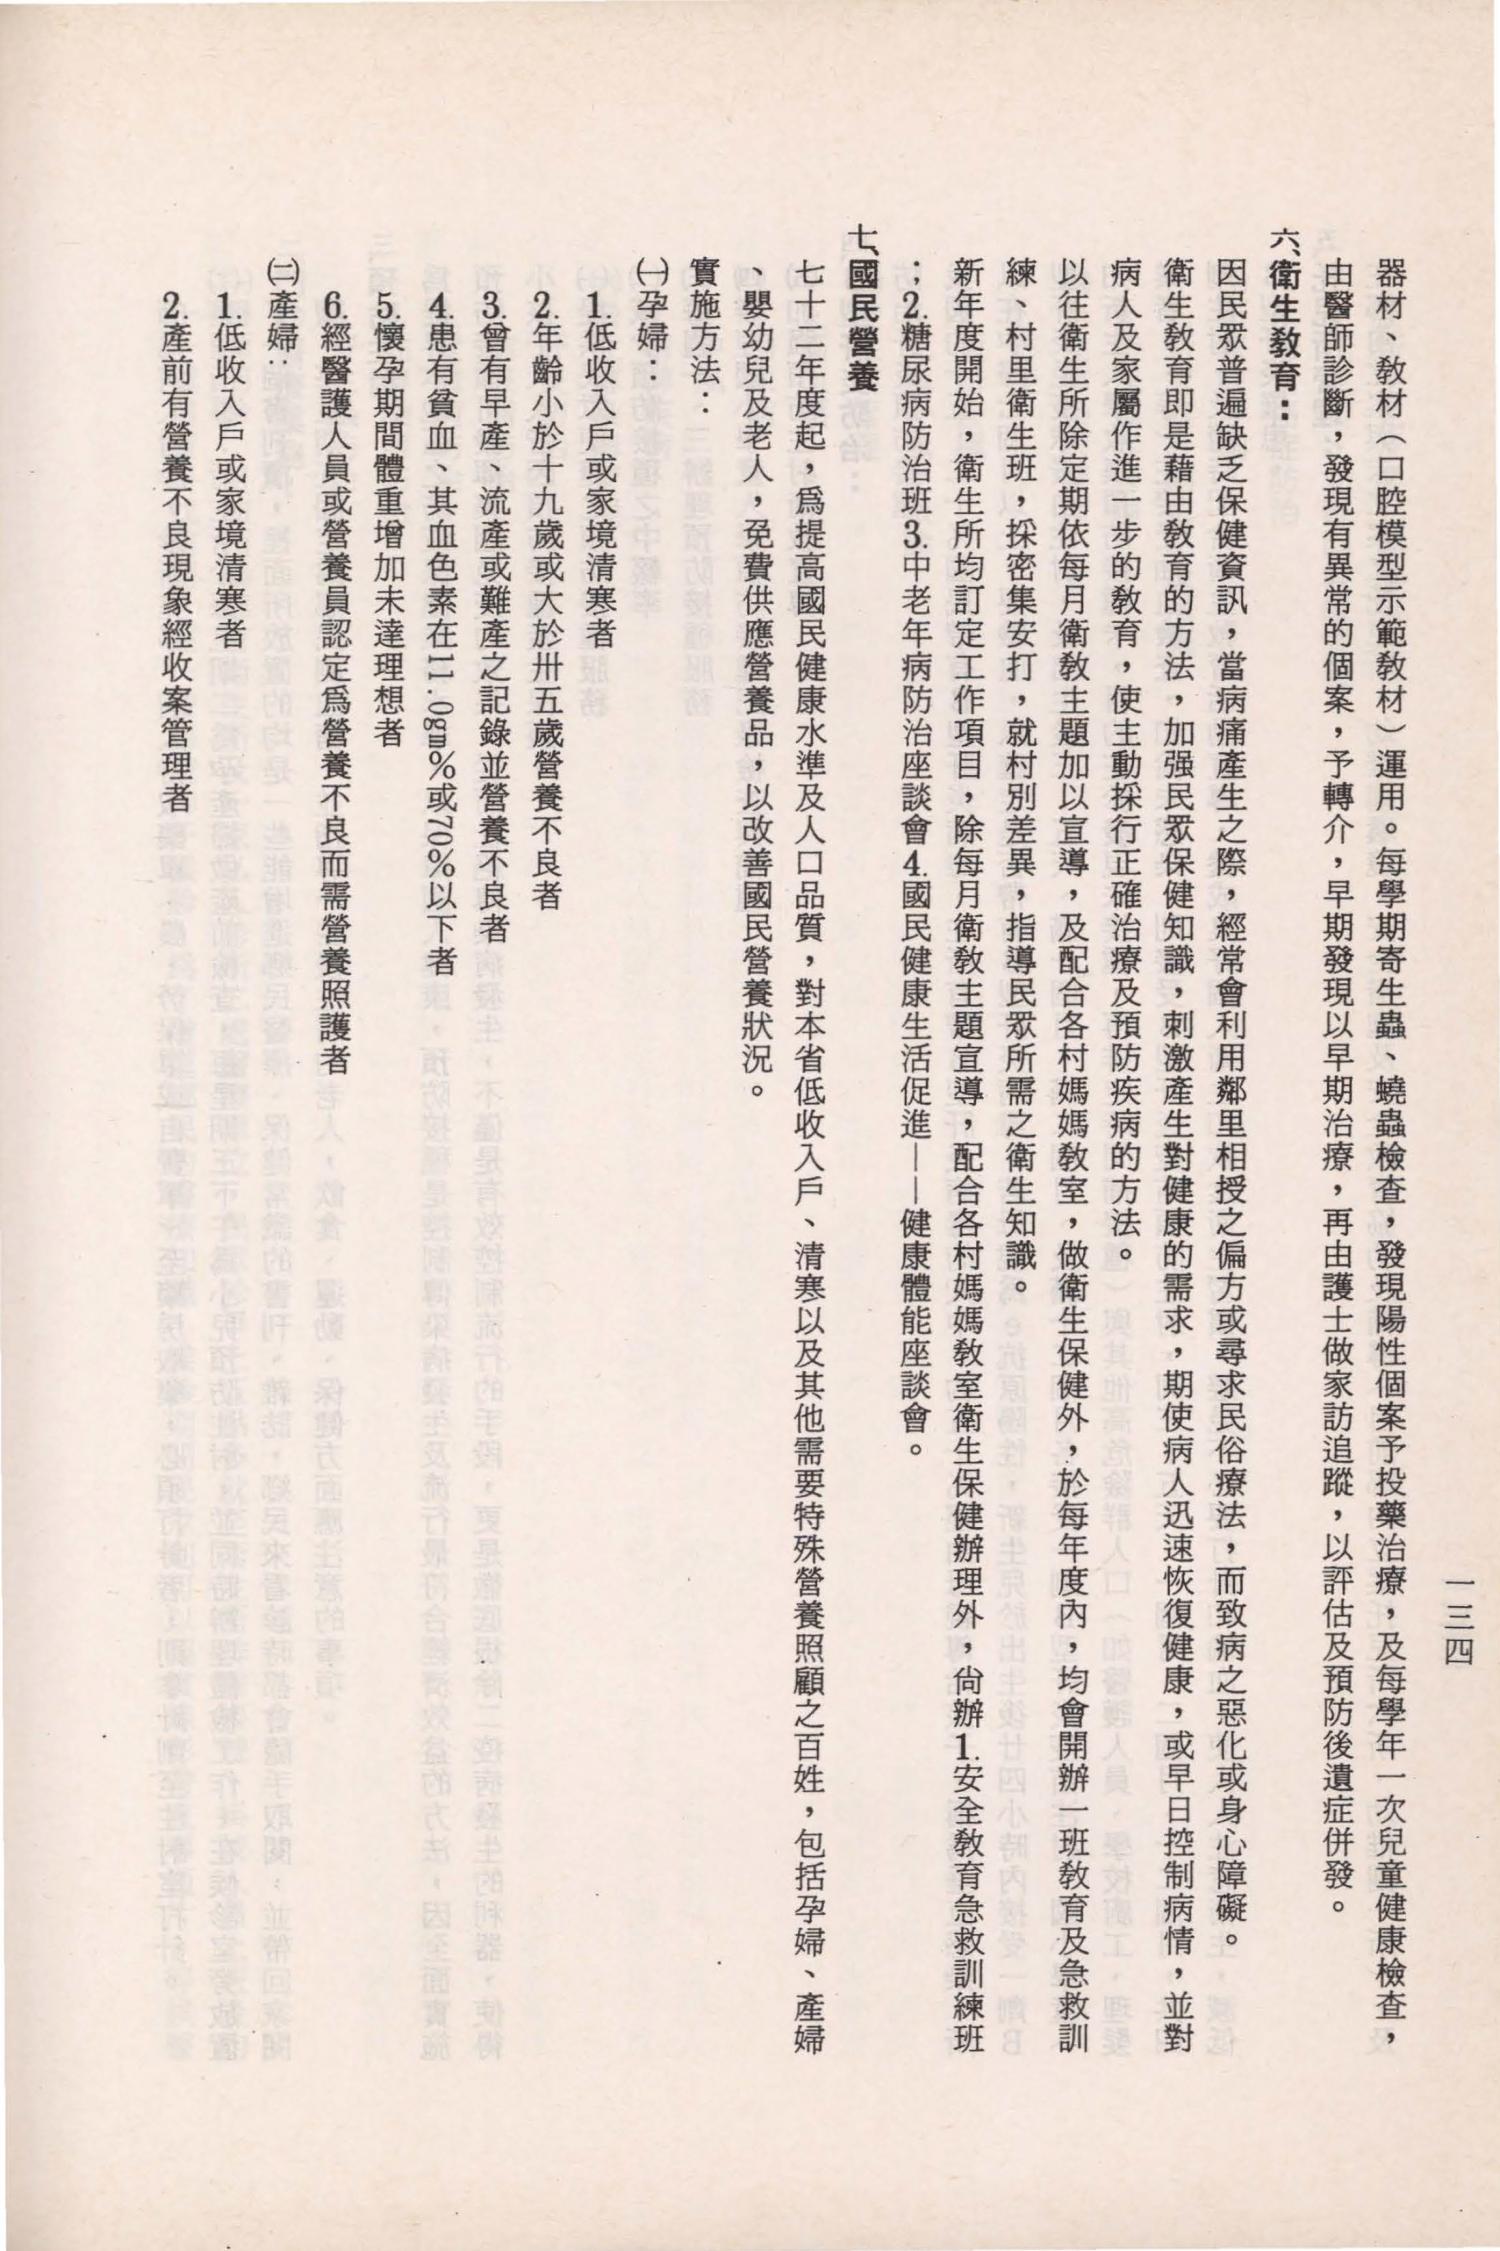 一三四
器材、教材（口腔模型示範教材）運用。每學期寄生蟲、蟯蟲檢查，發現陽性個案予投藥治療，及每學年一次兒童健康檢查，
由醫師診斷，發現有異常的個案，予轉介，早期發現以早期治療，再由護士做家訪追蹤，以評估及預防後遺症併發。
六、衛生教育：
因民眾普遍缺乏保健資訊，當病痛產生之際，經常會利用鄰里相授之偏方或尋求民俗療法，而致病之惡化或身心障礙。
衛生教育即是藉由教育的方法，加强民眾保健知識，刺激產生對健康的需求，期使病人迅速恢復健康，或早日控制病情，並對
病人及家屬作進一步的教育，使主動採行正確治療及預防疾病的方法。
以往衛生所除定期依每月衛教主題加以宣導，及配合各村媽媽教室，做衛生保健外，於每年度內，均會開辦一班教育及急救訓
練、村里衛生班，採密集安打，就村別差異，指導民眾所需之衛生知識。
新年度開始，衛生所均訂定工作項目，除每月衛教主題宣導，配合各村媽媽教室衛生保健辦理外，尙辦1.安全教育急救訓練班
；2.糖尿病防治班3.中老年病防治座談會4.國民健康生活促進——健康體能座談會。
七、國民營養
七十二年度起，爲提高國民健康水準及人口品質，對本省低收入戶、清寒以及其他需要特殊營養照顧之百姓，包括孕婦、產婦
、嬰幼兒及老人，免費供應營養品，以改善國民營養狀況。
實施方法：
㈠孕婦：
1.低收入戶或家境清寒者
2.年齡小於十九歲或大於卅五歲營養不良者
3.曾有早產、流產或難產之記錄並營養不良者
4.患有貧血、其血色素在11.0gm%或70%以下者
5.懷孕期間體重增加未達理想者
6.經醫護人員或營養員認定爲營養不良而需營養照護者
㈡產婦：
1.低收入戶或家境清寒者
2.產前有營養不良現象經收案管理者